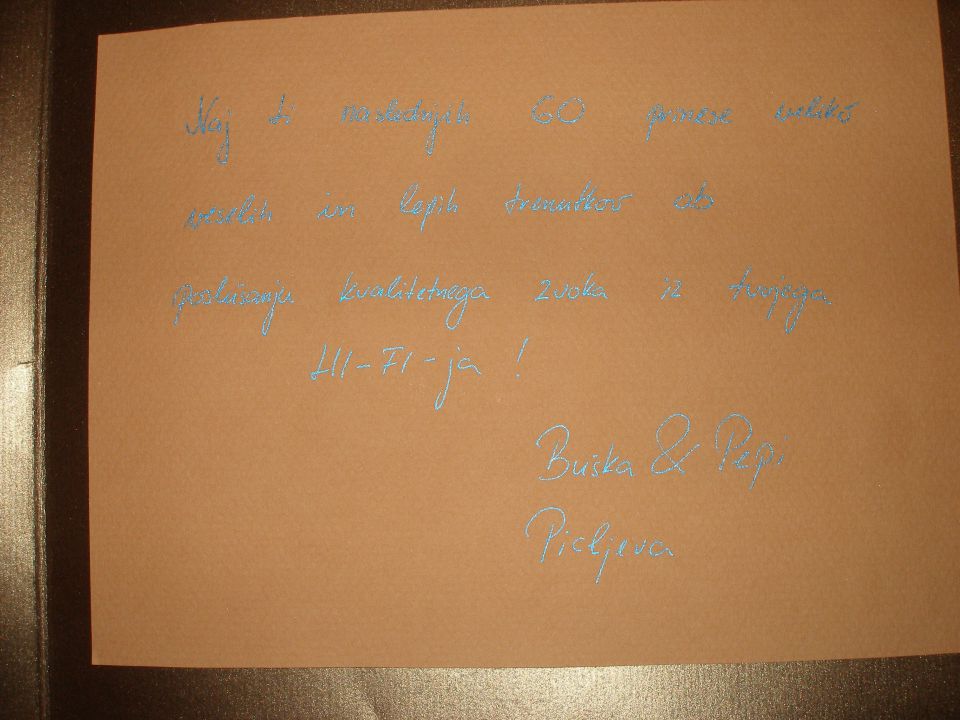 Naj ti naslednjih 60 prinese veliko
veselih in lepih trenutkov ob
poslušanju kvalitetnega zvoka iz tvojega
HI-FI-ja !
Buška & Pepi